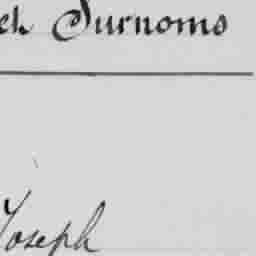 Surnoms
Joseph